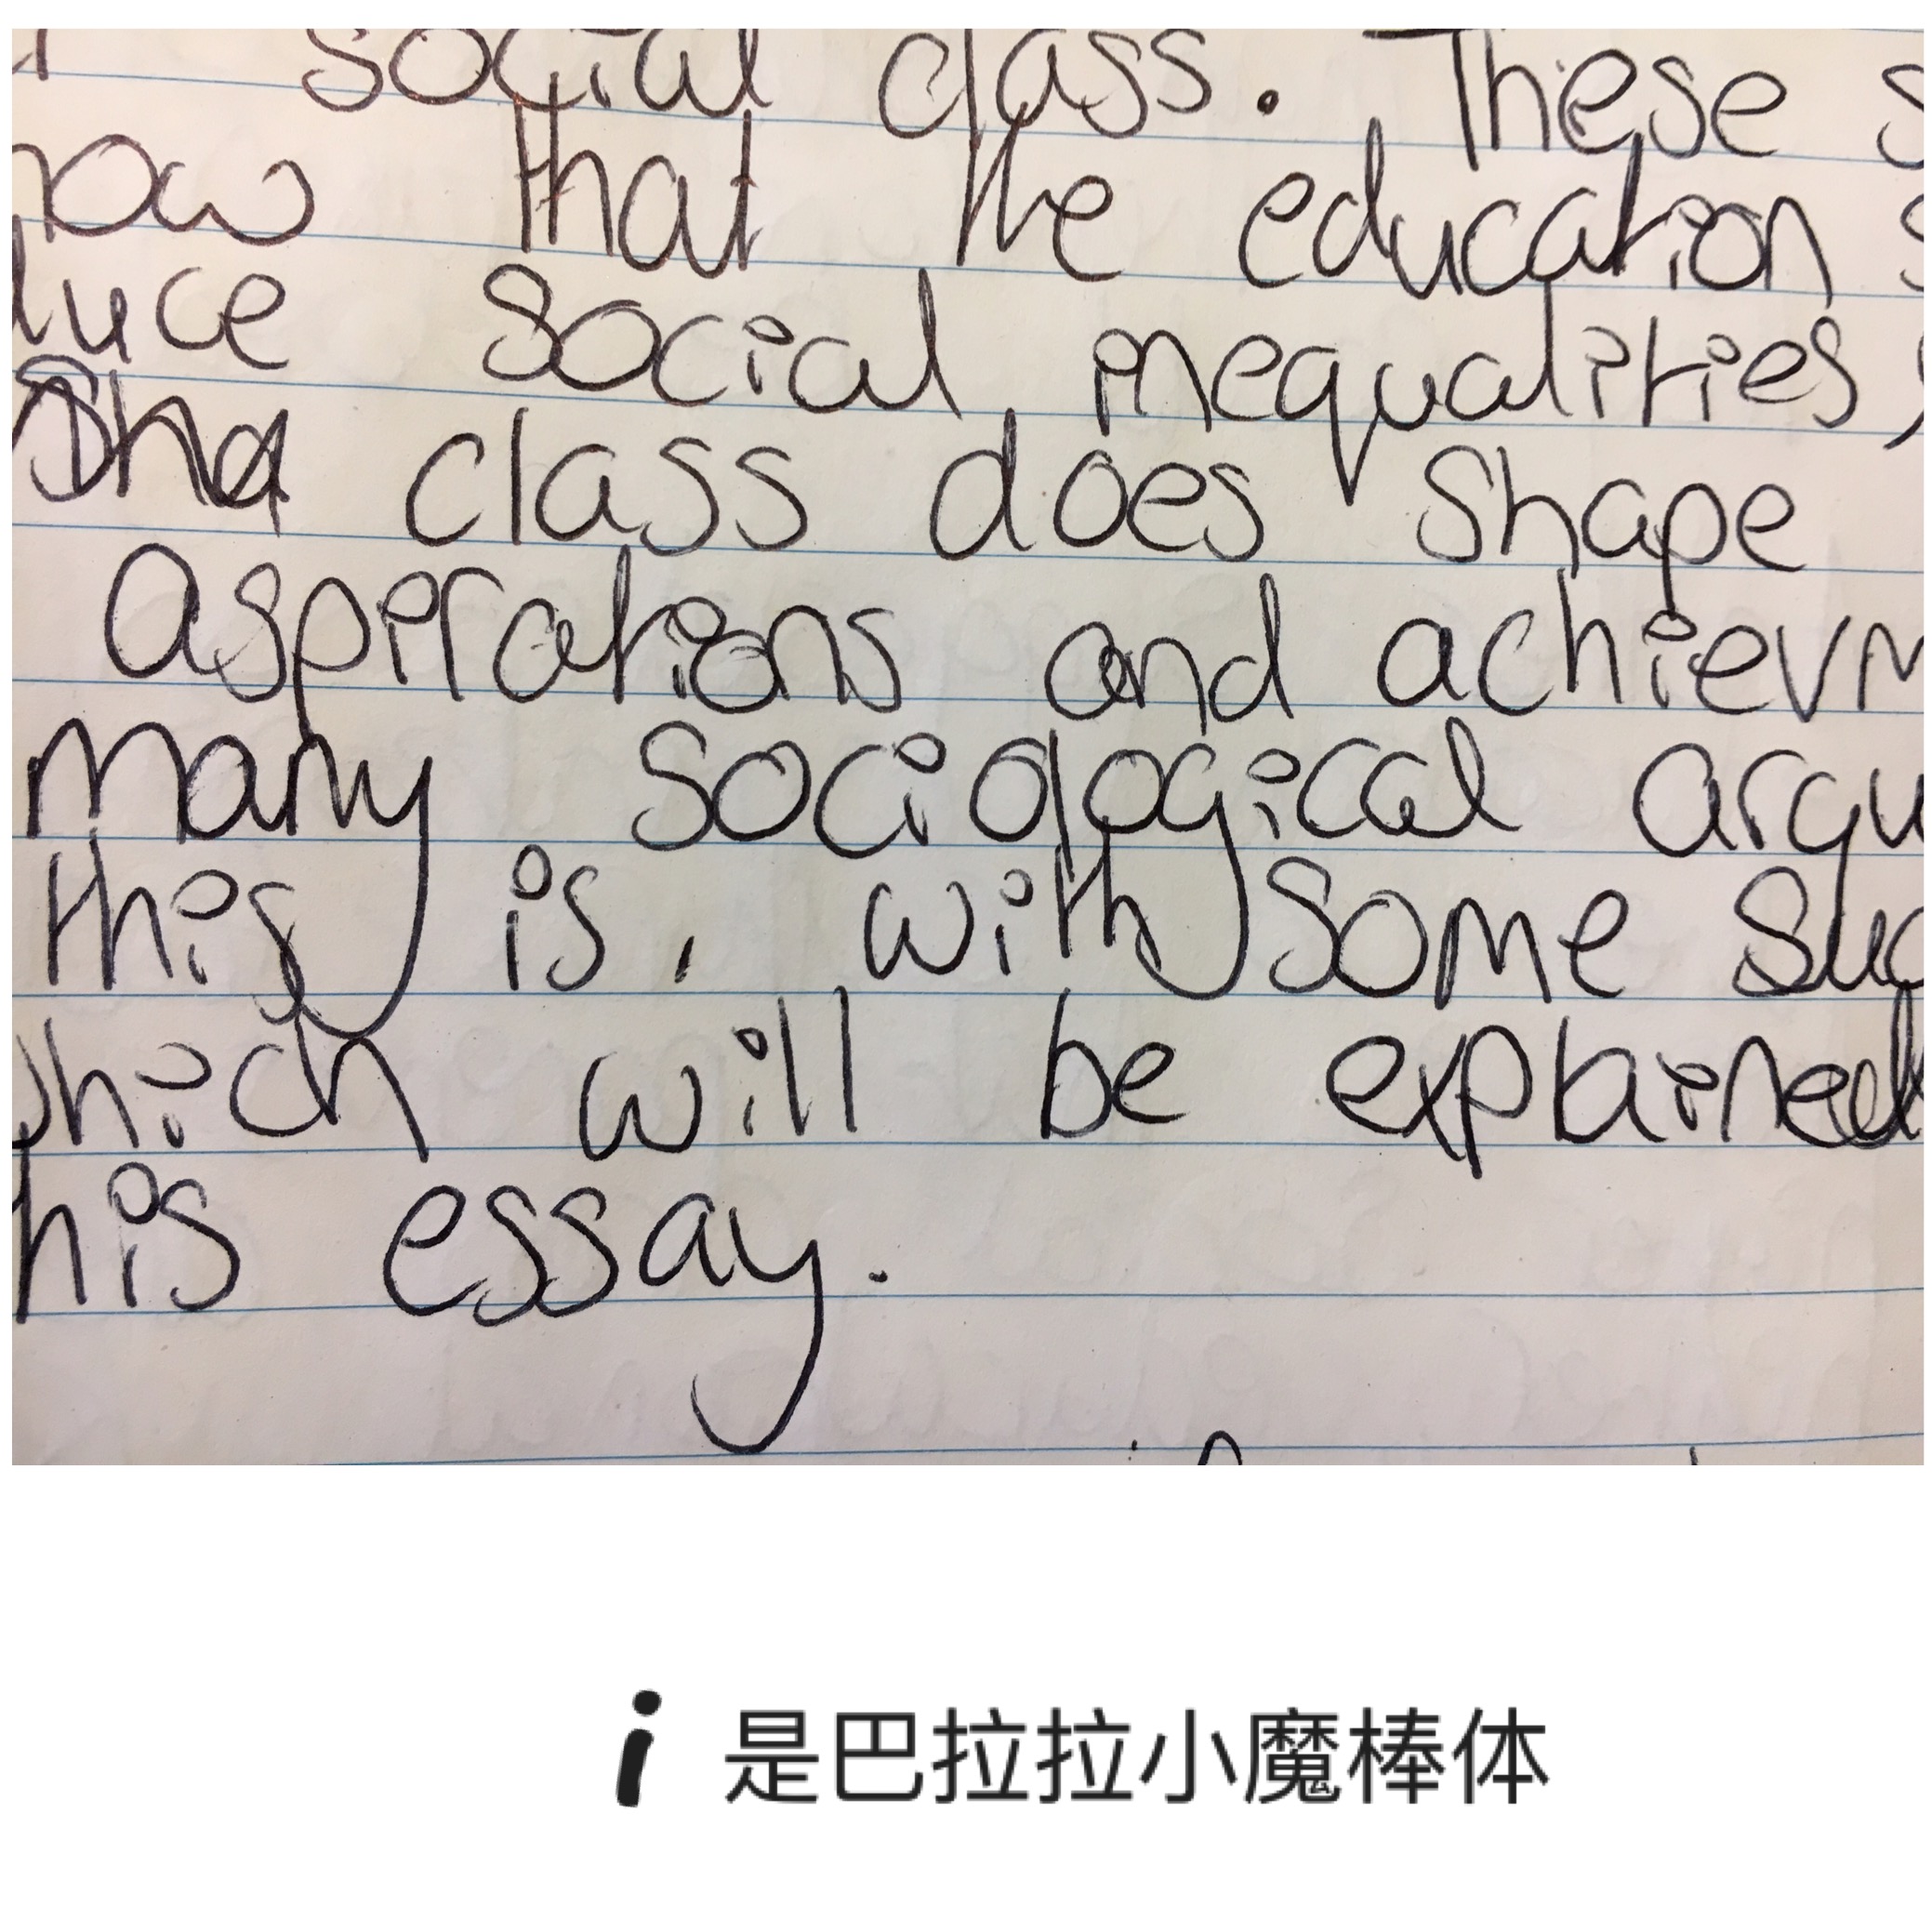 social class. These s
how that the education s
duce social inequalities,
and class does shape
asperations and achievm
many sociological argu
this is, with some suc
which will be explained
this essay.
i 是巴拉拉小魔棒体